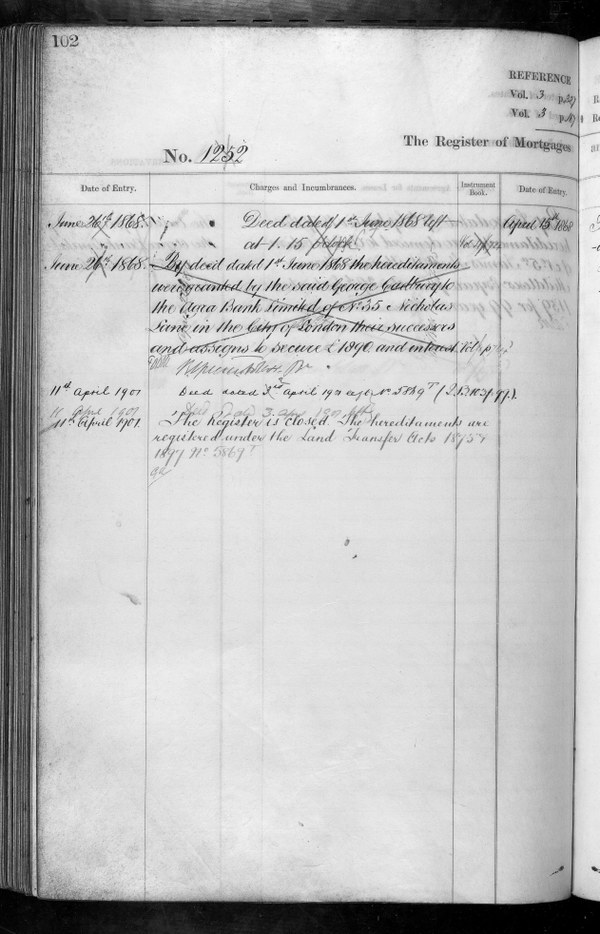 102
REFERENCE
Vol. 3 p.
Vol. 3 p.
No. 1252 The Register of Mortgages
Date of Entry. Charges and Incumbrances. Instrument Book. Date of Entry.
June 26th 1868. " " Deed dated 1st June 1868 left April 15th 1868
at 1.15 o'clock
June 26th 1868. By deed dated 1st June 1868 the hereditaments
were granted by the said George to
the Agra Bank Limited of No. 35 Nicholas
Lane in the City of London their successors
and assigns to secure £1890 and interest
11th April 1901 Deed dated 3rd April 1901
11 April 1901
11th April 1901. The Register is closed. The hereditaments are
registered under the Land Transfer Acts 1875 &
1897 No 5869